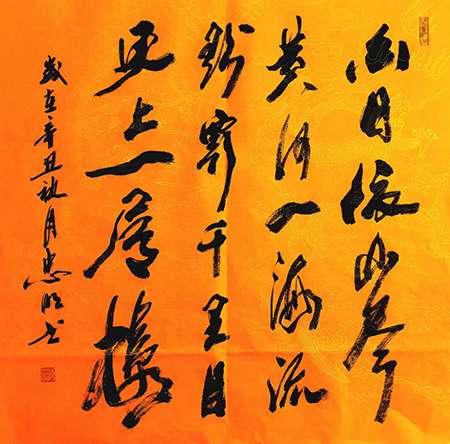 白日依山尽
黄河入海流
欲窮千里目
更上一層樓
歲在辛丑秋月忠书